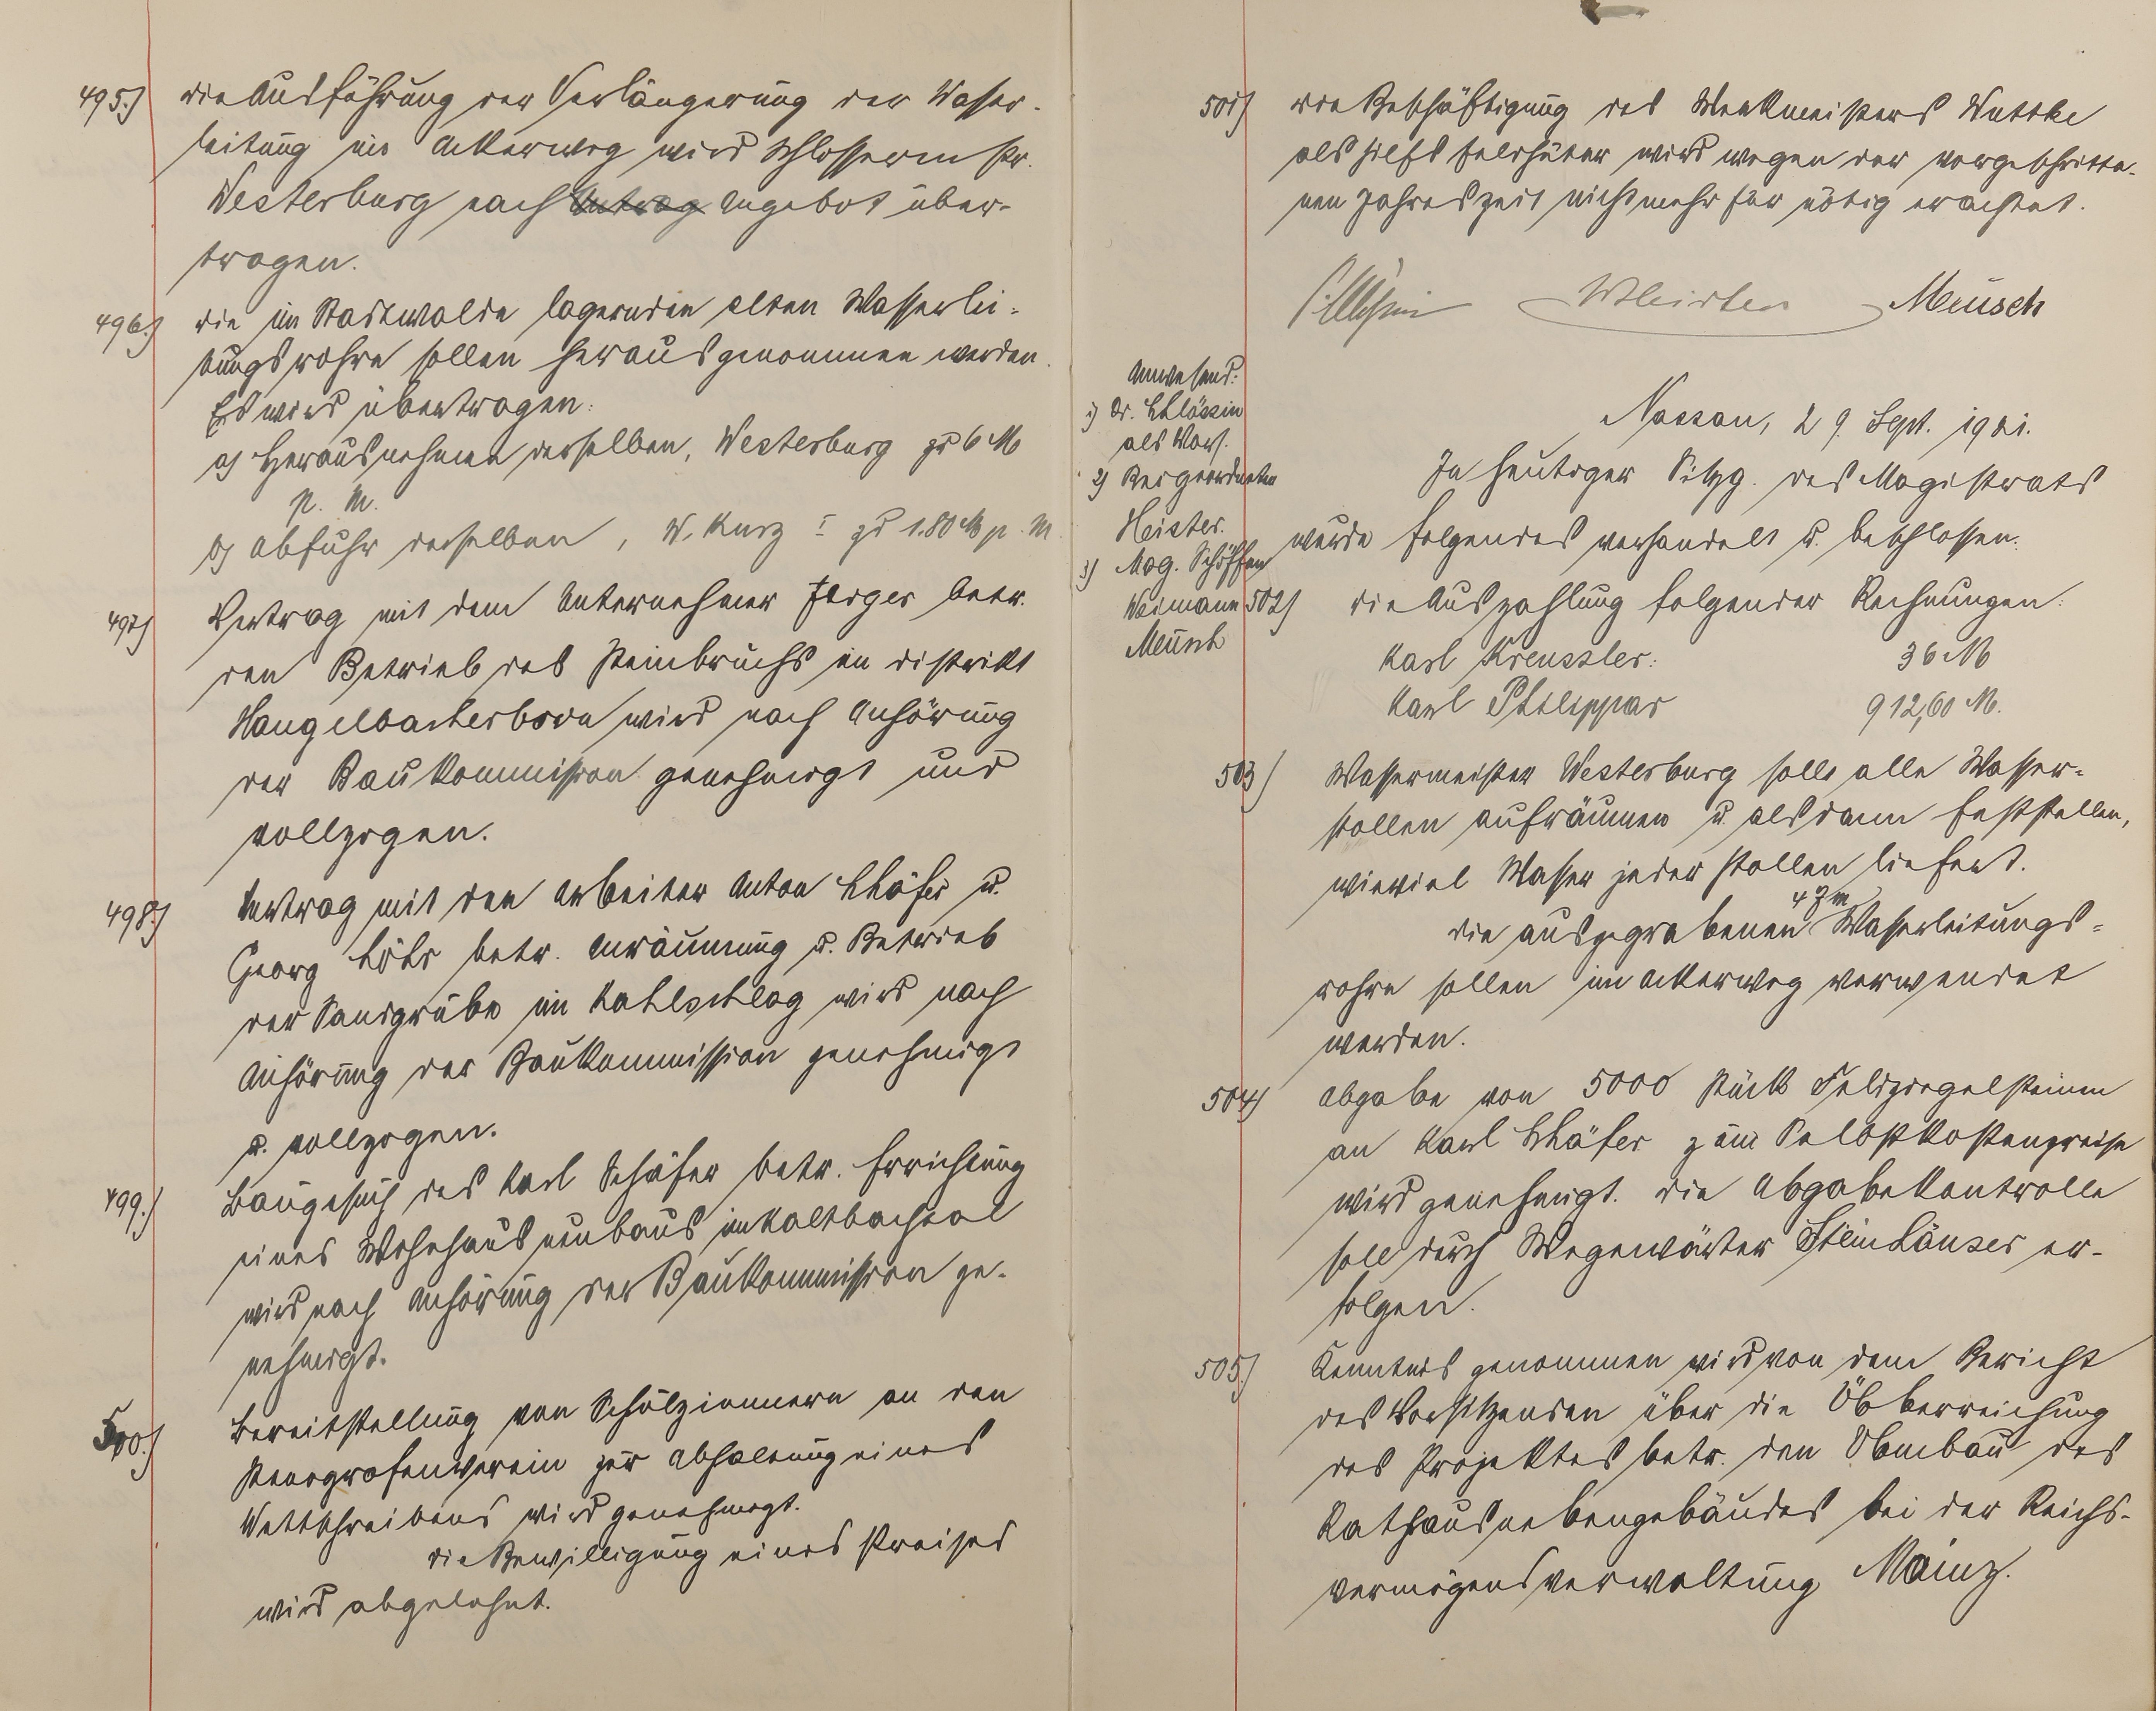 495.) Die Ausführung der Verlängerung der Wasser-
leitung im Ackerweg wird Schlosserm str.
Westerburg nach Antrag Angebot über-
tragen.
496.) Die im Stadtwalde lagernden alten Wasserlei-
tungsrohre sollen herausgenommen werden.
Es wird übertragen:
a) Herausnehmen derselben, Westerburg zu 6 M
p. M.
b) Abfuhr derselben, W. Kurz I zu 1.80 M p. M.
497.) Vertrag mit dem Unternehmer Jörges betr.
den Betrieb des Steinbruchs im Distrikt
Hangelbacherborn wird nach Anhörung
der Baukommission genehmigt und
vollzogen.
498.) Vertrag mit den Arbeiter Anton Schäfer u.
Georg Löhr betr. Anräumung u. Betrieb
der Sandgrube im Kahlschlag wird nach
Anhörung der Baukommission genehmigt
u. vollzogen.
499.) Baugesuch des Karl Schäfer betr. Errichtung
eines Wohnhausneubaus im Kaltbachtal
wird nach Anhörung der Baukommission ge-
nehmigt.
500.) Bereitstellung von Schulzimmern an den
Stenografenverein zur Abhaltung eines
Wettschreibens wird genehmigt.
Die Bewilligung eines Preises
wird abgelehnt.
501) Die Beschäftigung des Werkmeisters Wuttke
als Hilfsfeldhüter wird wegen der vorgeschritte-
nen Jahreszeit nicht mehr für nötig erachtet.
Meusch
Anwesend:
1) Dr. Schlössin
als Vors.
2) Beigeordneten
Heister.
3) Mag. Schöffen
Weimann
Meusch
Nassau, 29. Sept. 1921.
In heutiger Sitzg. des Magistrats
wurde folgendes verhandelt u. beschlossen:
502) Die Auszahlung folgender Rechnungen:
Karl Kreussler: 36 M
Karl Philippar 912,60 M.
503) Wassermeister Westerburg soll alle Wasser-
stollen aufräumen u. alsdann feststellen,
wieviel Wasser jeder Stollen liefert.
Die ausgegrabenen 47 m Wasserleitungs-
rohre sollen im Ackerweg verwendet
werden.
504) Abgabe von 5000 Stück Feldziegelsteinen
an Karl Schäfer zum Selbstkostenpreise
wird genehmigt. Die Abgabekontrolle
soll durch Wegewärter Steinhäuser er-
folgen.
505.) Kenntnis genommen wird von dem Bericht
des Vorsitzenden über die Überreichung
des Projektes betr. den Umbau des
Rathausnebengebäudes bei der Reichs-
vermögensverwaltung Mainz.